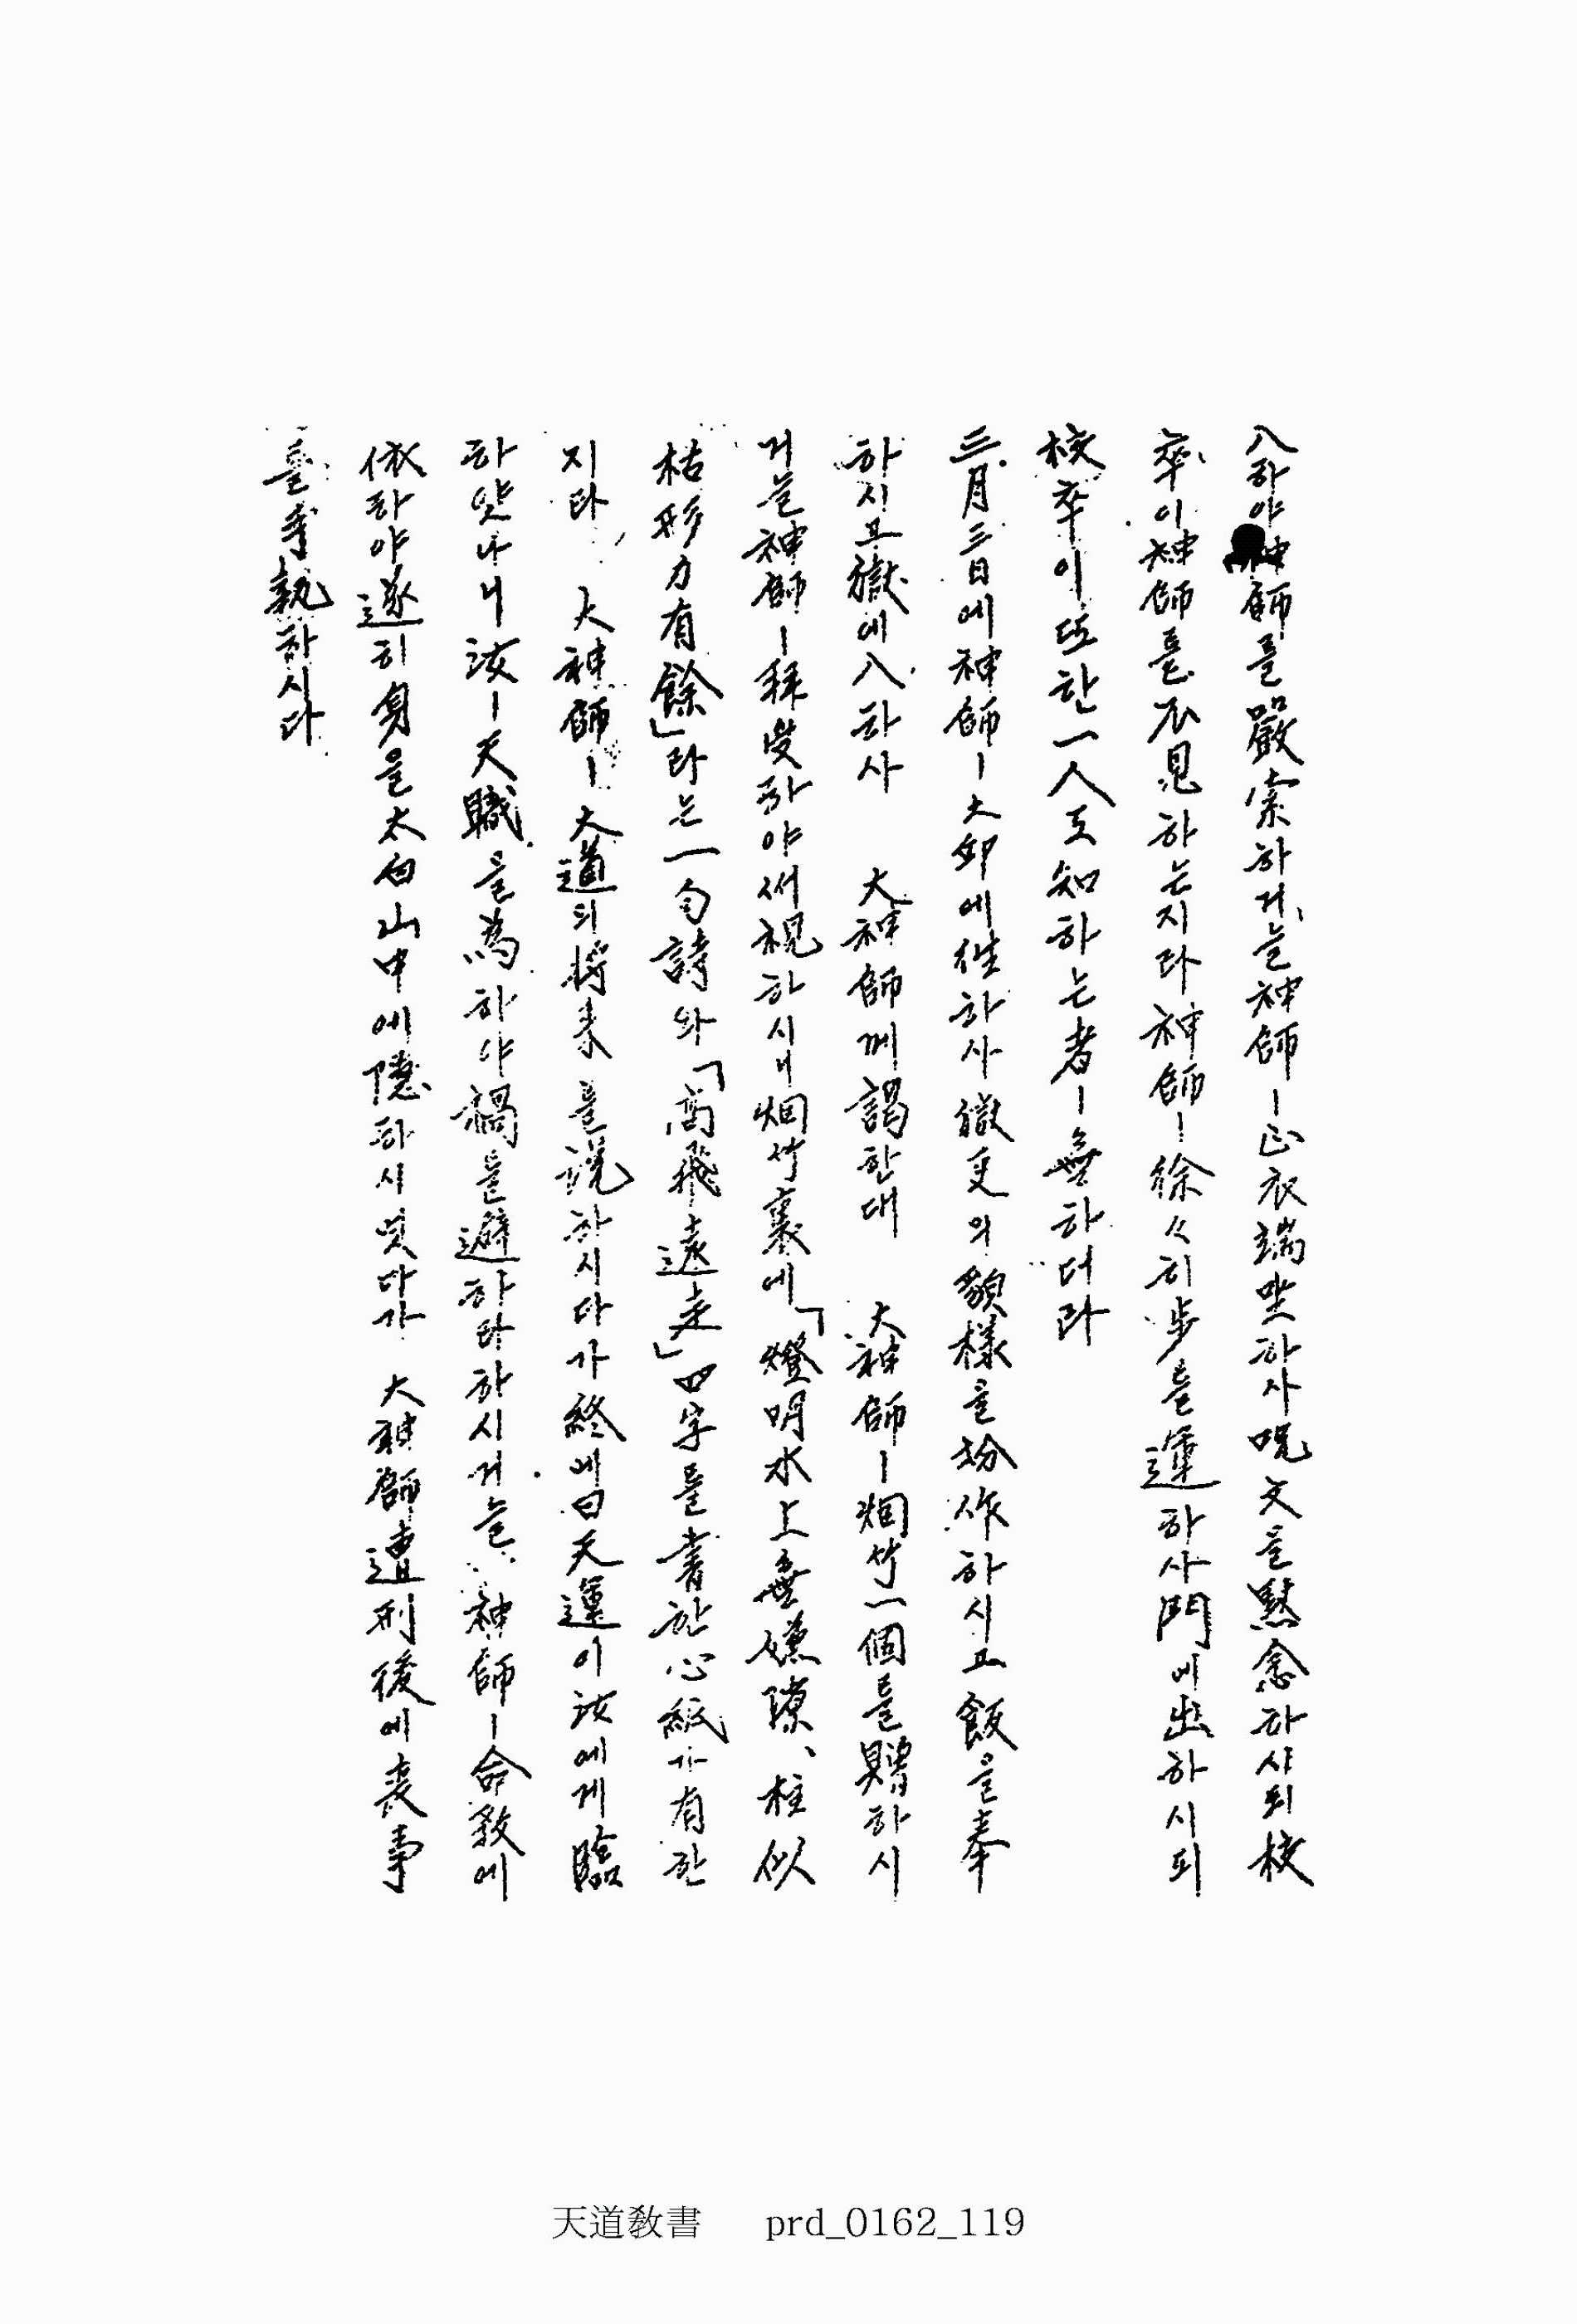 入하야神師를嚴索하거늘神師ㅣ正衣端坐하사呪文을黙念하사되校
卒이神師를不見하는지라神師ㅣ徐々히步를運하사門에出하시되
校卒이또한一人도知하는者ㅣ無하더라
三月三日에神師ㅣ大邱에往하사獄吏의貌樣을扮作하시고飯을奉
하시고獄에入하사 大神師께謁한대 大神師ㅣ烟竹一個를贈하시
거늘神師ㅣ拜受하야 視하시니烟竹裏에「燈明水上無嫌隙、柱似
枯形力有餘」라는一句詩와「高飛遠走」四字를書한心紙가有한
지라 大神師ㅣ大道의將來를說하시다가終에曰天運이汝에게臨
하얏나니汝ㅣ天職을爲하야禍를避하라하시거늘神師ㅣ命敎에
依하야遂히身을太白山中에隱하시엿다가 大神師遭刑後에喪事
를 執하시다
天道敎書 prd_0162_119